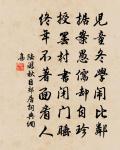 兒童冬學鬧比鄰
據案愚儒卻自珍
授罷村書閉門睡
終年不著面看人
陸游秋日郊居詞典網
集